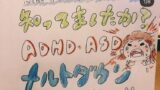 知ってましたか?
ADHD・ASD
メルトダウン